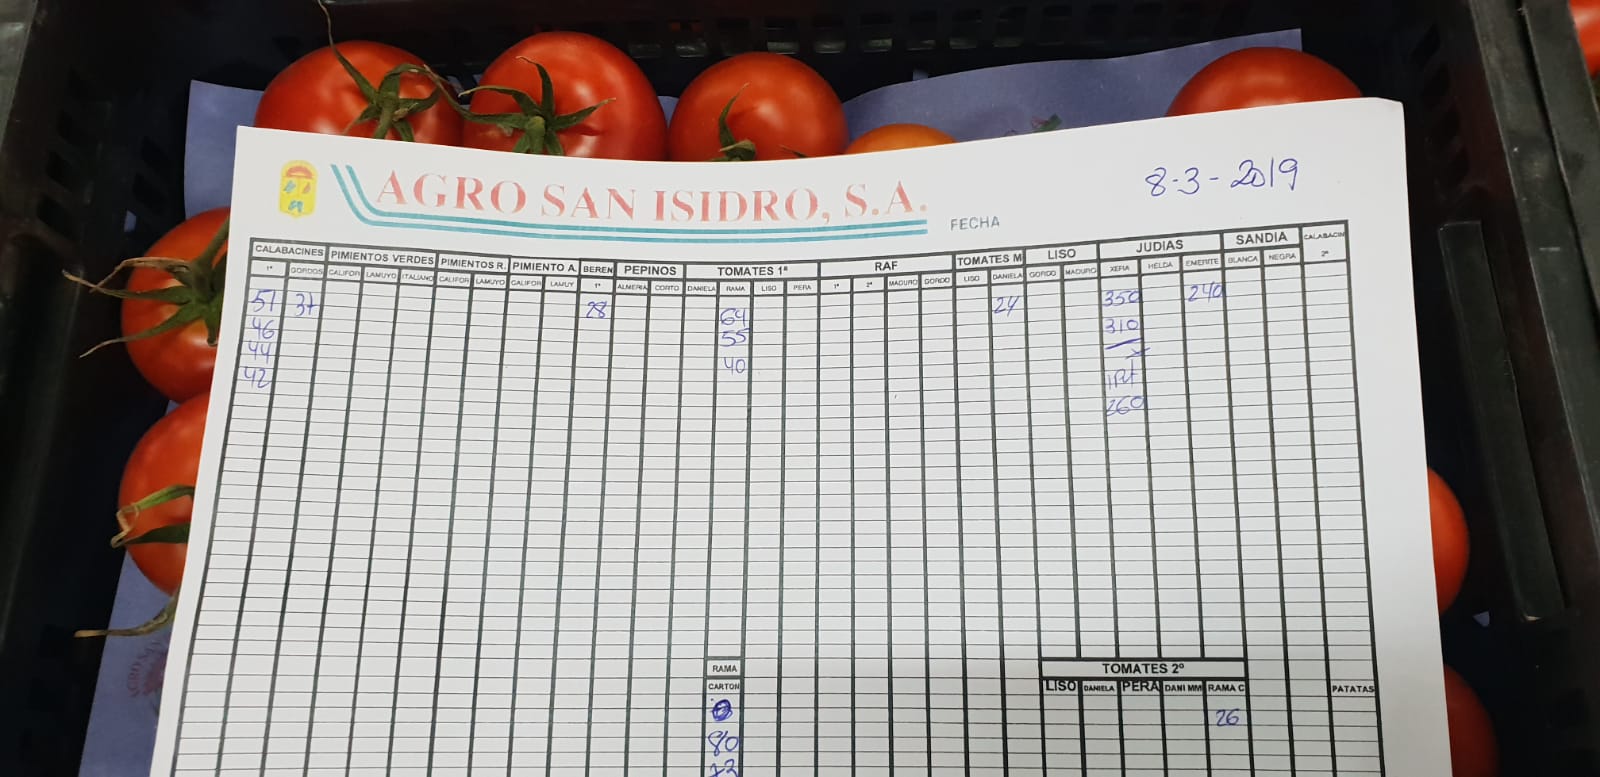 AGRO SAN ISIDRO, S.A.
FECHA
8-3-2019
CALABACINES PIMIENTOS VERDES PIMIENTOS R. PIMIENTO A. BEREN PEPINOS TOMATES 1ª RAF TOMATES M LISO JUDIAS SANDIA CALABACIN
1ª GORDOS CALIFOR LAMUYO ITALIANO CALIFOR LAMUYO CALIFOR LAMUY 1ª ALMERIA CORTO DANIELA RAMA LISO PERA 1ª 2ª MADURO GORDO LISO DANIELA GORDO MADURO XERA HELDA EMERITE BLANCA NEGRA 2ª
51 37 28 64 24 350 240
46 55 310
44 40
42 260
RAMA TOMATES 2º
CARTON LISO DANIELA PERA DANI MM RAMA C PATATAS
26
80
73